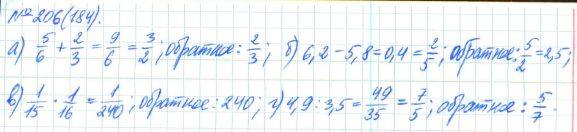 №206(184).
а) 5/6 + 2/3 = 9/6 = 3/2; обратное: 2/3; б) 6,2-5,8=0,4=2/5; обратное: 5/2=2,5;
в) 1/15 · 1/16 = 1/240; обратное: 240; г) 4,9:3,5=49/35=7/5; обратное: 5/7.